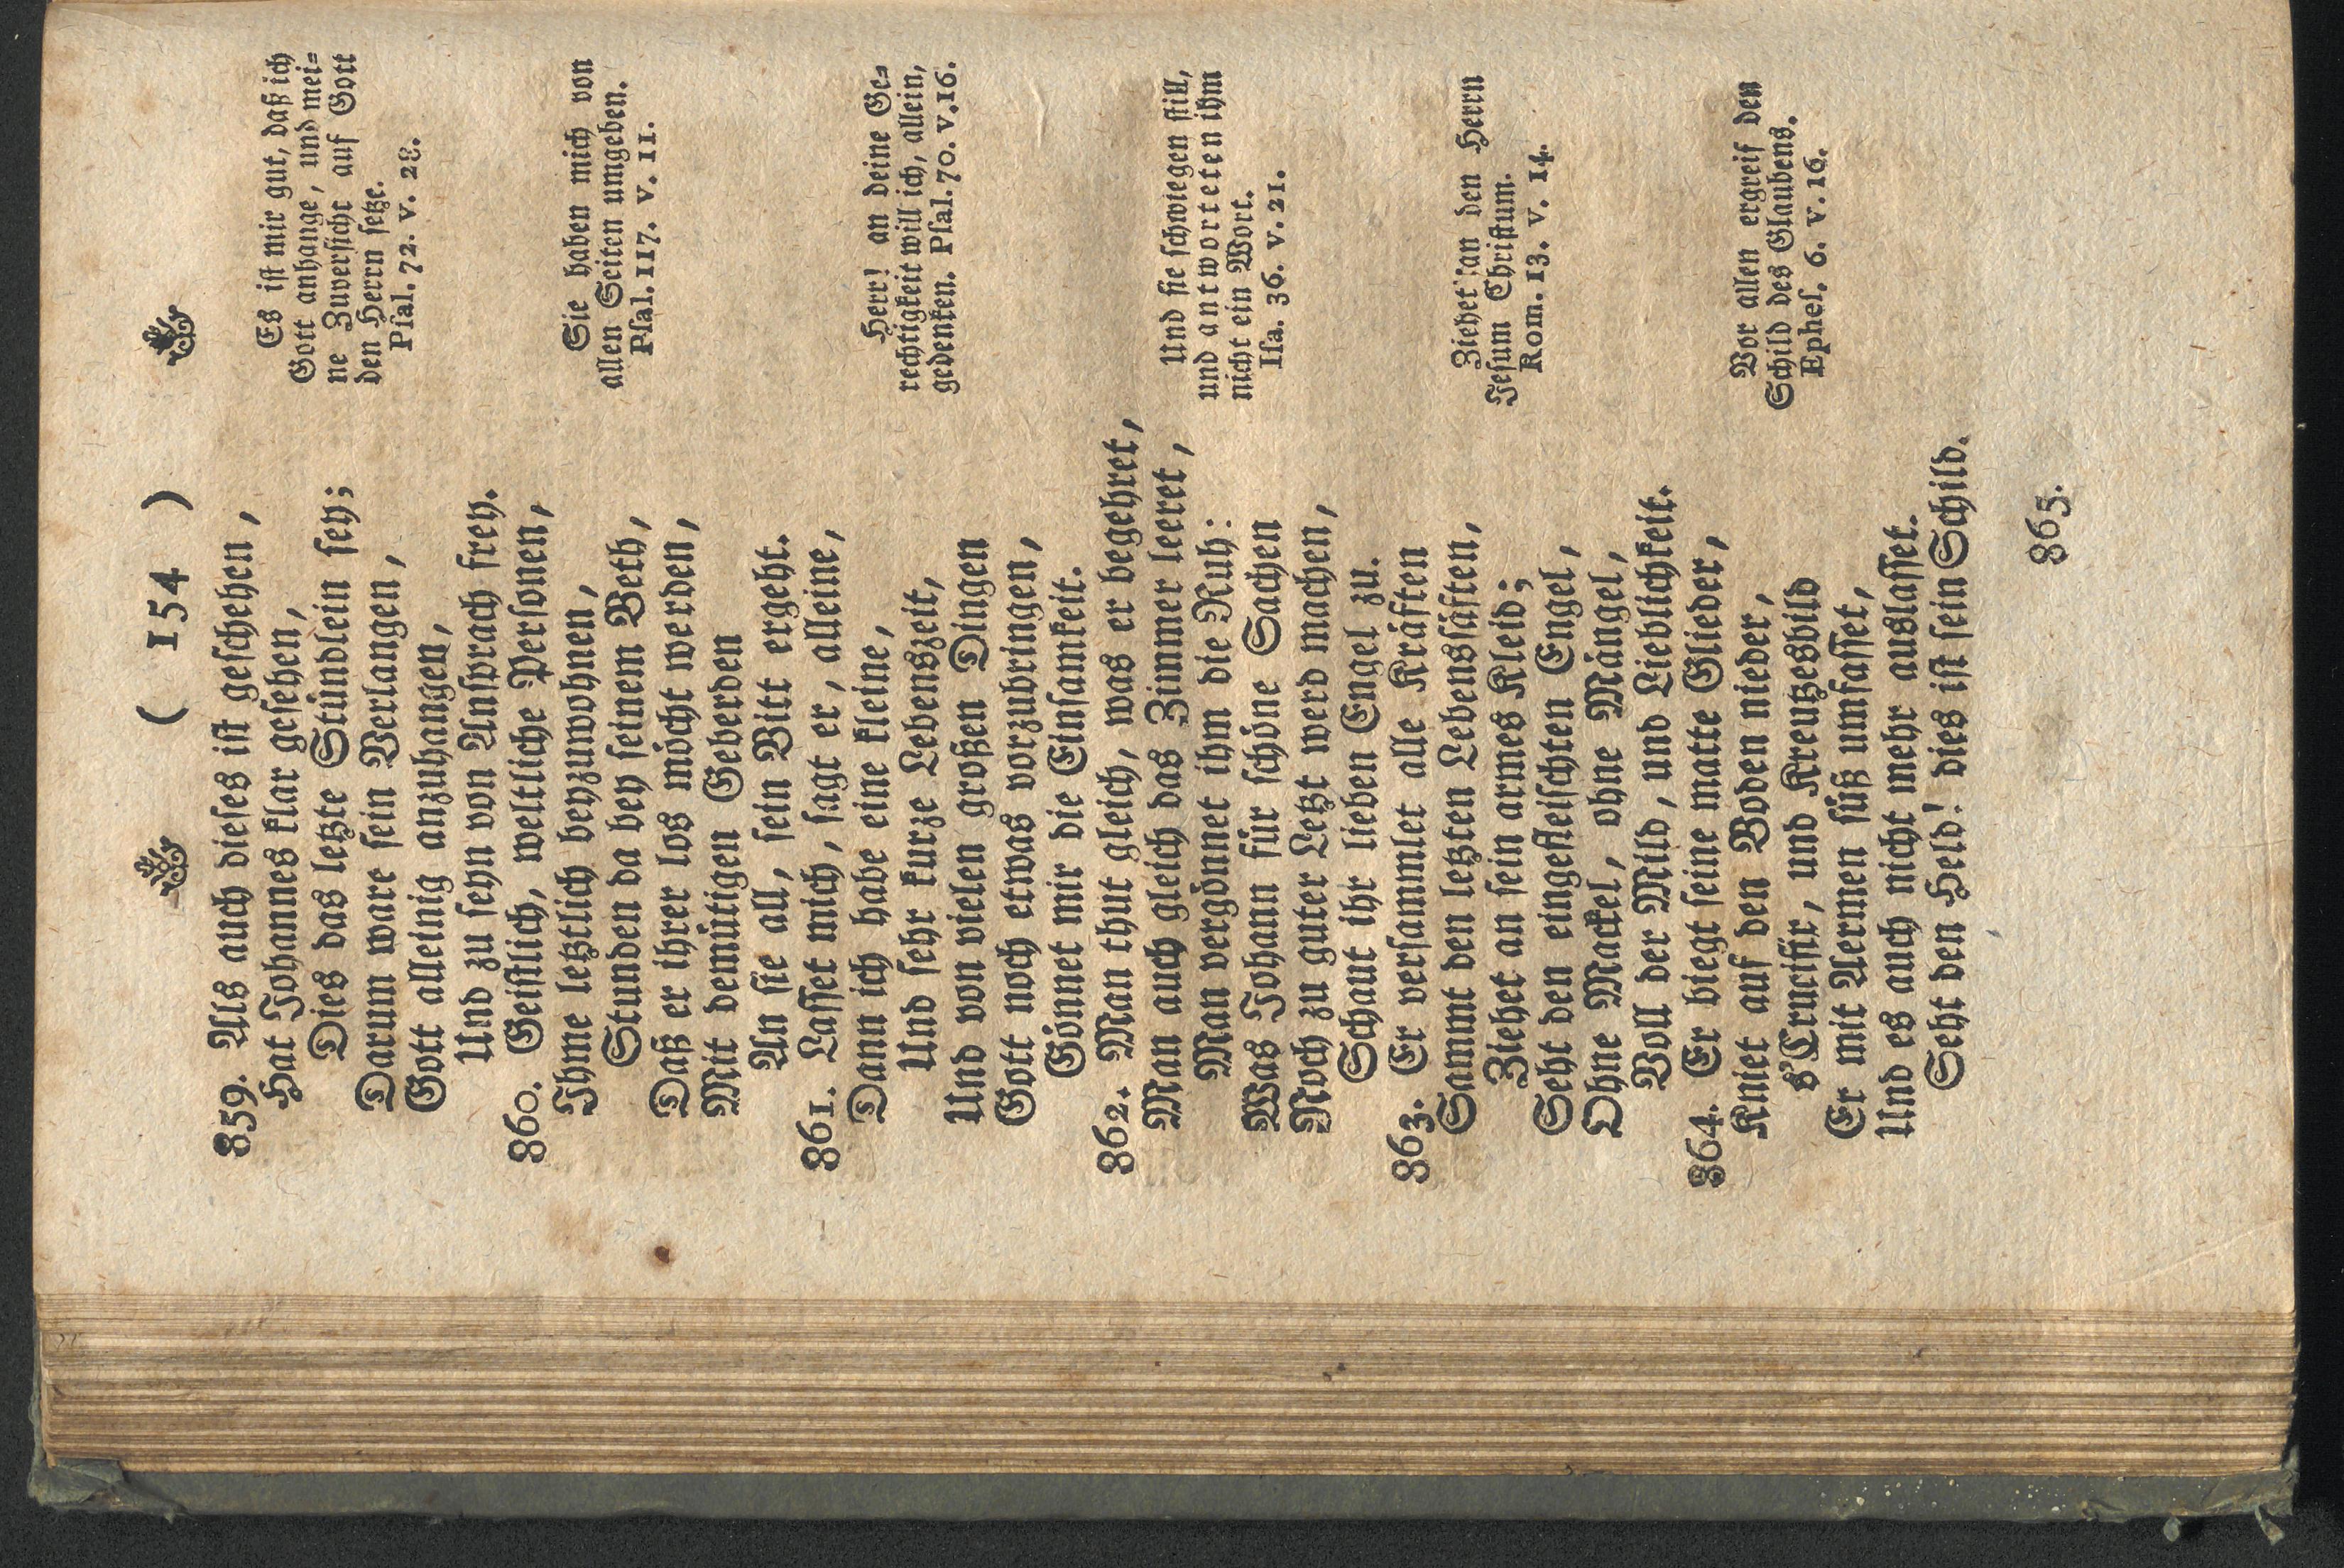 ( 154 )
859. Als auch dieses ist geschehen,
Hat Johannes klar gesehen,
Dies das letzte Stündlein sey;
Darum ware sein Verlangen,
Gott alleinig anzuhangen,
Und zu seyn von Ansprach frey.
Es ist mir gut, daß ich
Gott anhange, und mei=
ne Zuversicht auf Gott
den Herrn setze.
Psal. 72. v. 28.
860. Geistlich, weltliche Personen,
Ihme letztlich beyzuwohnen,
Stunden da bey seinem Beth,
Daß er ihrer los möcht werden,
Mit demütigen Geberden
An sie all, sein Bitt ergeht.
Sie haben mich von
allen Seiten umgeben.
Psal. 117. v. 11.
861. Lasset mich, sagt er, alleine,
Dann ich habe eine kleine,
Und sehr kurze Lebenszeit,
Und von vielen großen Dingen
Gott noch etwas vorzubringen,
Gönnet mir die Einsamkeit.
Herr! an deine Ge=
rechtigkeit will ich, allein,
gedenken. Psal. 70. v. 16.
862. Man thut gleich, was er begehret,
Man auch gleich das Zimmer leeret,
Man vergönnet ihm die Ruh:
Was Johann für schöne Sachen
Noch zu guter Letzt werd machen,
Schaut ihr lieben Engel zu.
Und sie schwiegen still,
und antworteten ihm
nicht ein Wort.
Isa. 36. v. 21.
863. Er versammlet alle Kräften
Sammt den letzten Lebenssäften,
Ziehet an sein armes Kleid;
Seht den eingefleischten Engel,
Ohne Mackel, ohne Mängel,
Voll der Mild, und Lieblichkeit.
Ziehet an den Herrn
Jesum Christum.
Rom. 13. v. 14.
864. Er biegt seine matte Glieder,
Kniet auf den Boden nieder,
s'Crucifix, und Kreutzesbild
Er mit Aermen süß umfasset,
Und es auch nicht mehr auslasset.
Seht den Held! dies ist sein Schild.
Vor allen ergreif den
Schild des Glaubens.
Ephes. 6. v. 16.
865.